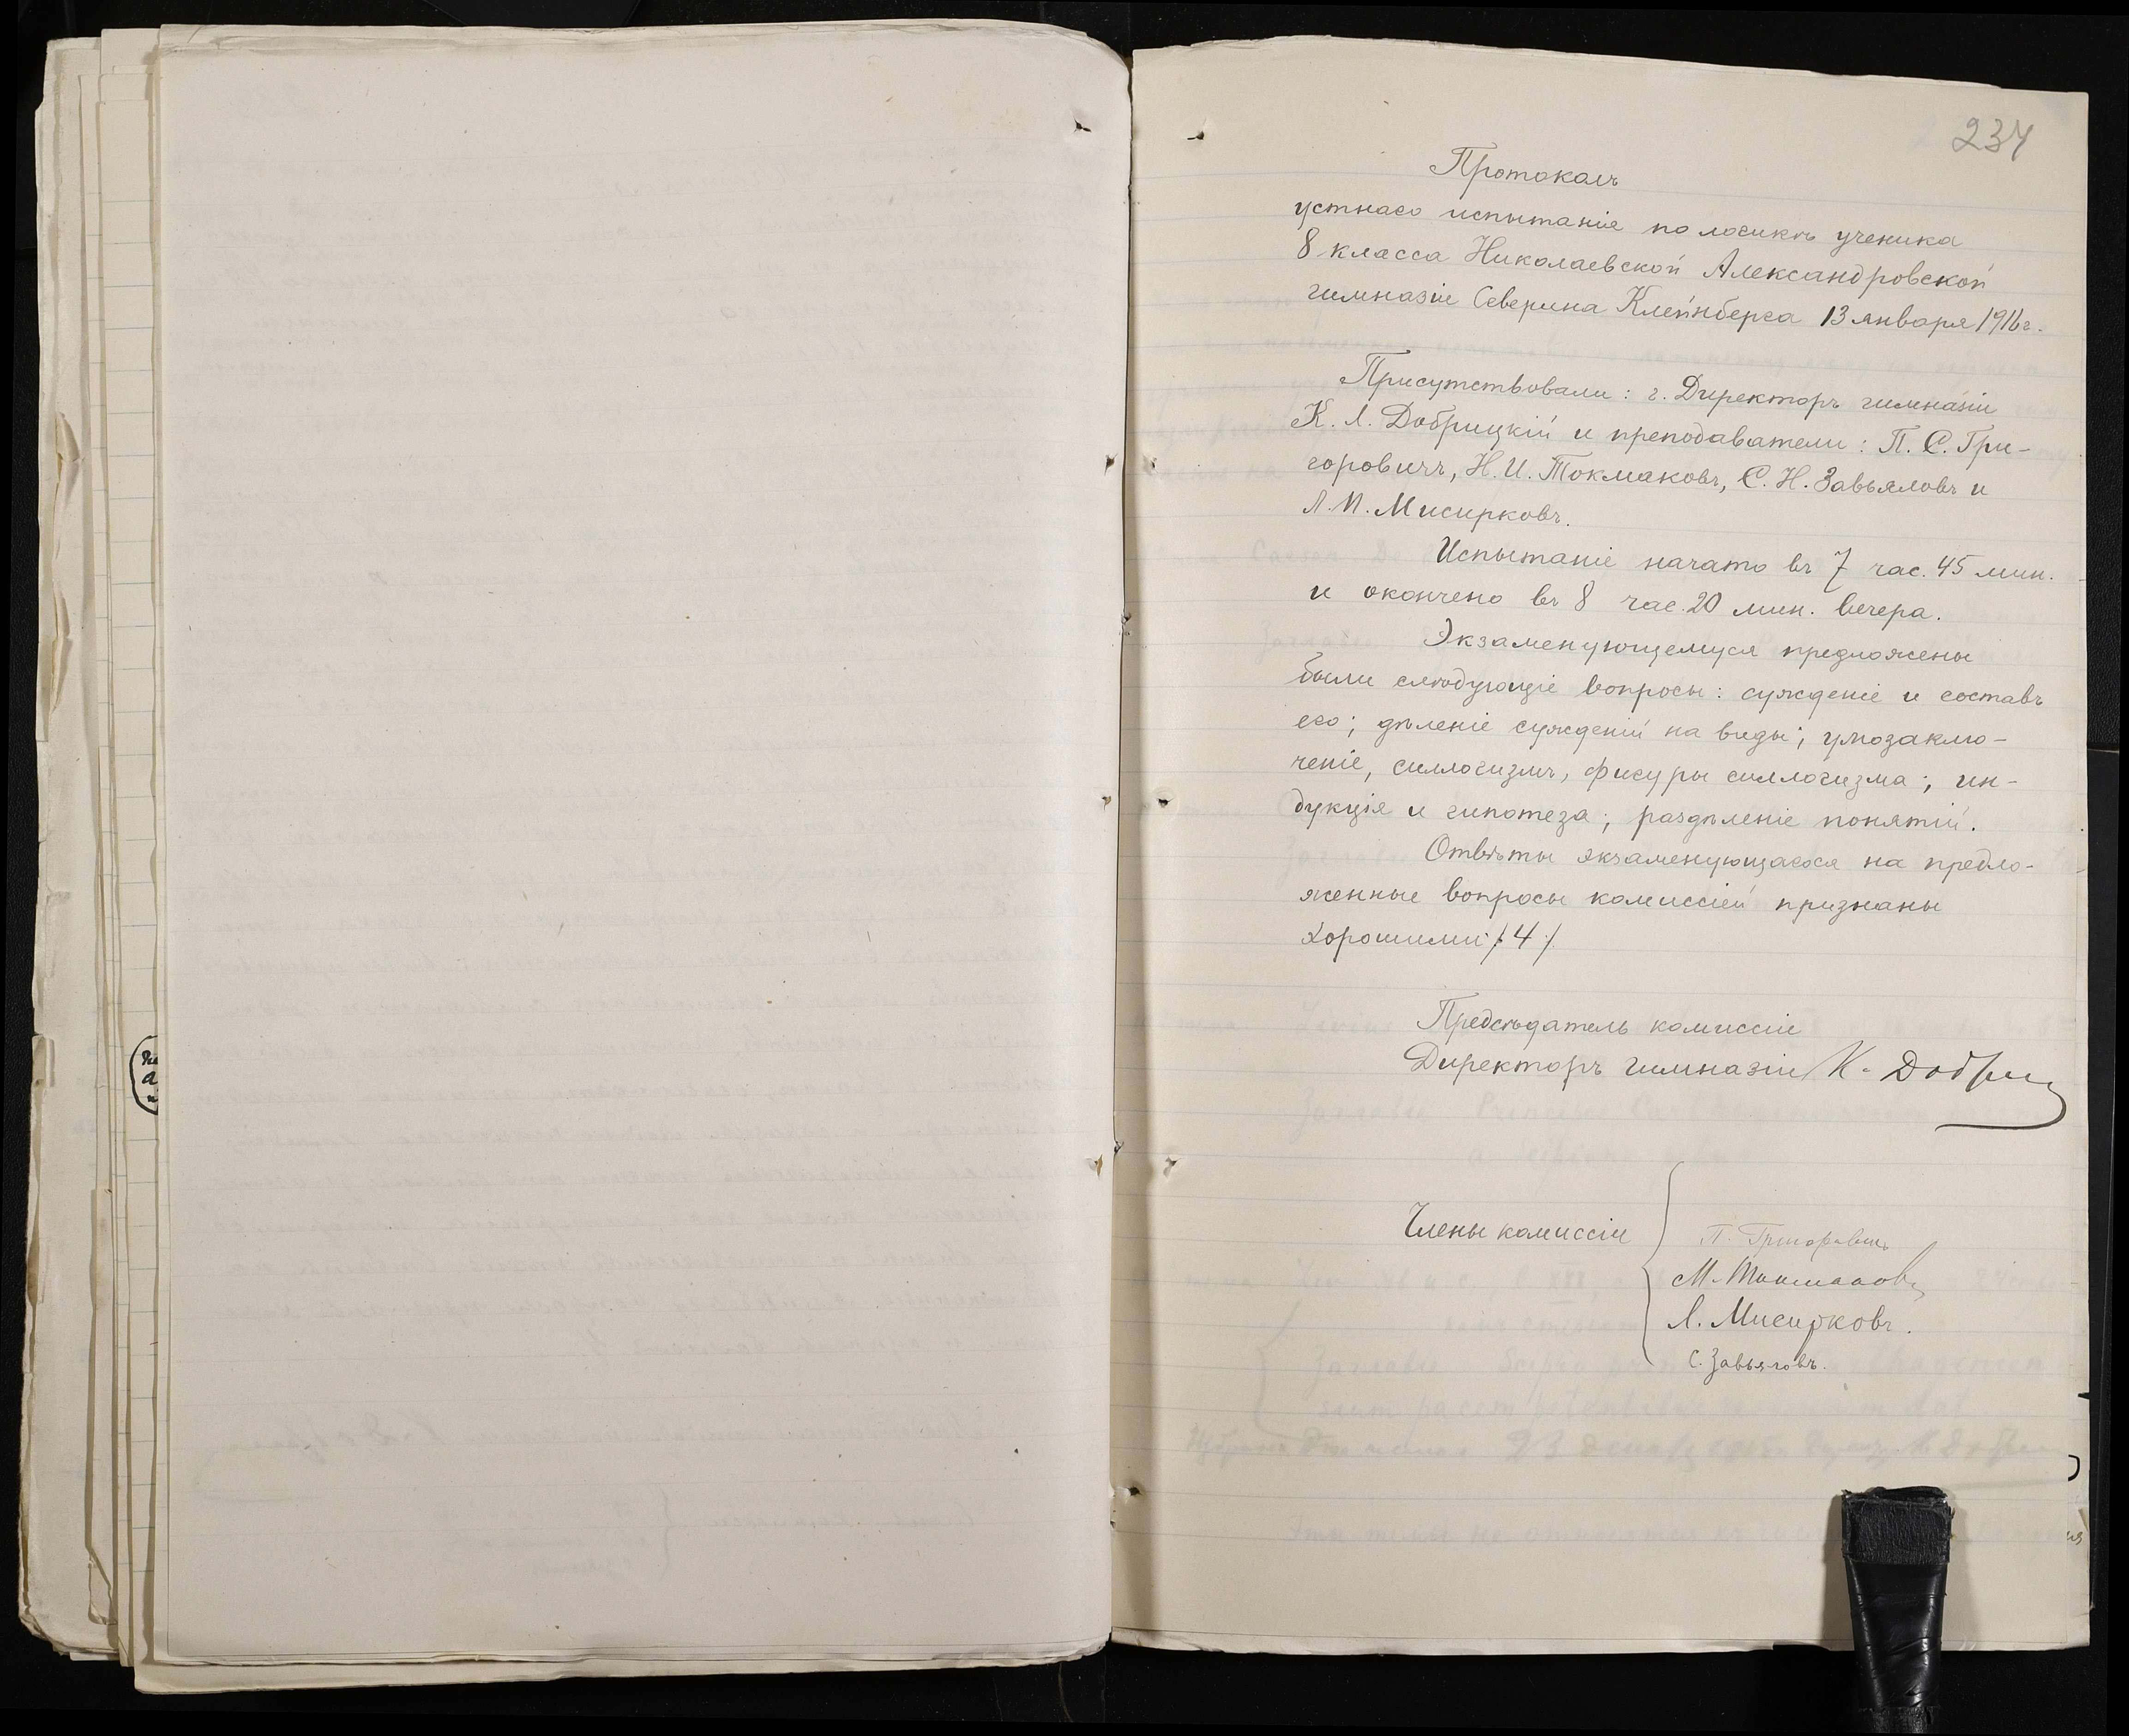 234
Протоколъ
устнаго испытанія по логикѣ ученика
8 класса Николаевской Александровской
гимназіи Северина Клейнберга 13 января 1916 г.
Присутствовали: г. Директоръ гимназіи
К. Л. Добрицкій и преподаватели: П. С. Гри-
горовичъ, Н. И. Токмаковъ, С. Н. Завьяловъ и
Л. П. Мисирковъ.
Испытаніе начато въ 7 час. 45 мин.
и окончено въ 8 час. 20 мин. вечера.
Экзаменующемуся предложены
были слѣдующіе вопросы: сужденіе и составъ
его; дѣленіе сужденій на виды; умозаклю-
ченіе, силлогизмъ, фигуры силлогизма; ин-
дукція и гипотеза; раздѣленіе понятій.
Отвѣты экзаменующагося на предло-
женные вопросы комиссіей признаны
хорошими /4/.
Предсѣдатель комиссіи
Директоръ гимназіи К. Добриц
Члены комиссіи
П. Григоровичъ
М. Токмаковъ
Л. Мисирковъ.
С. Завьяловъ.